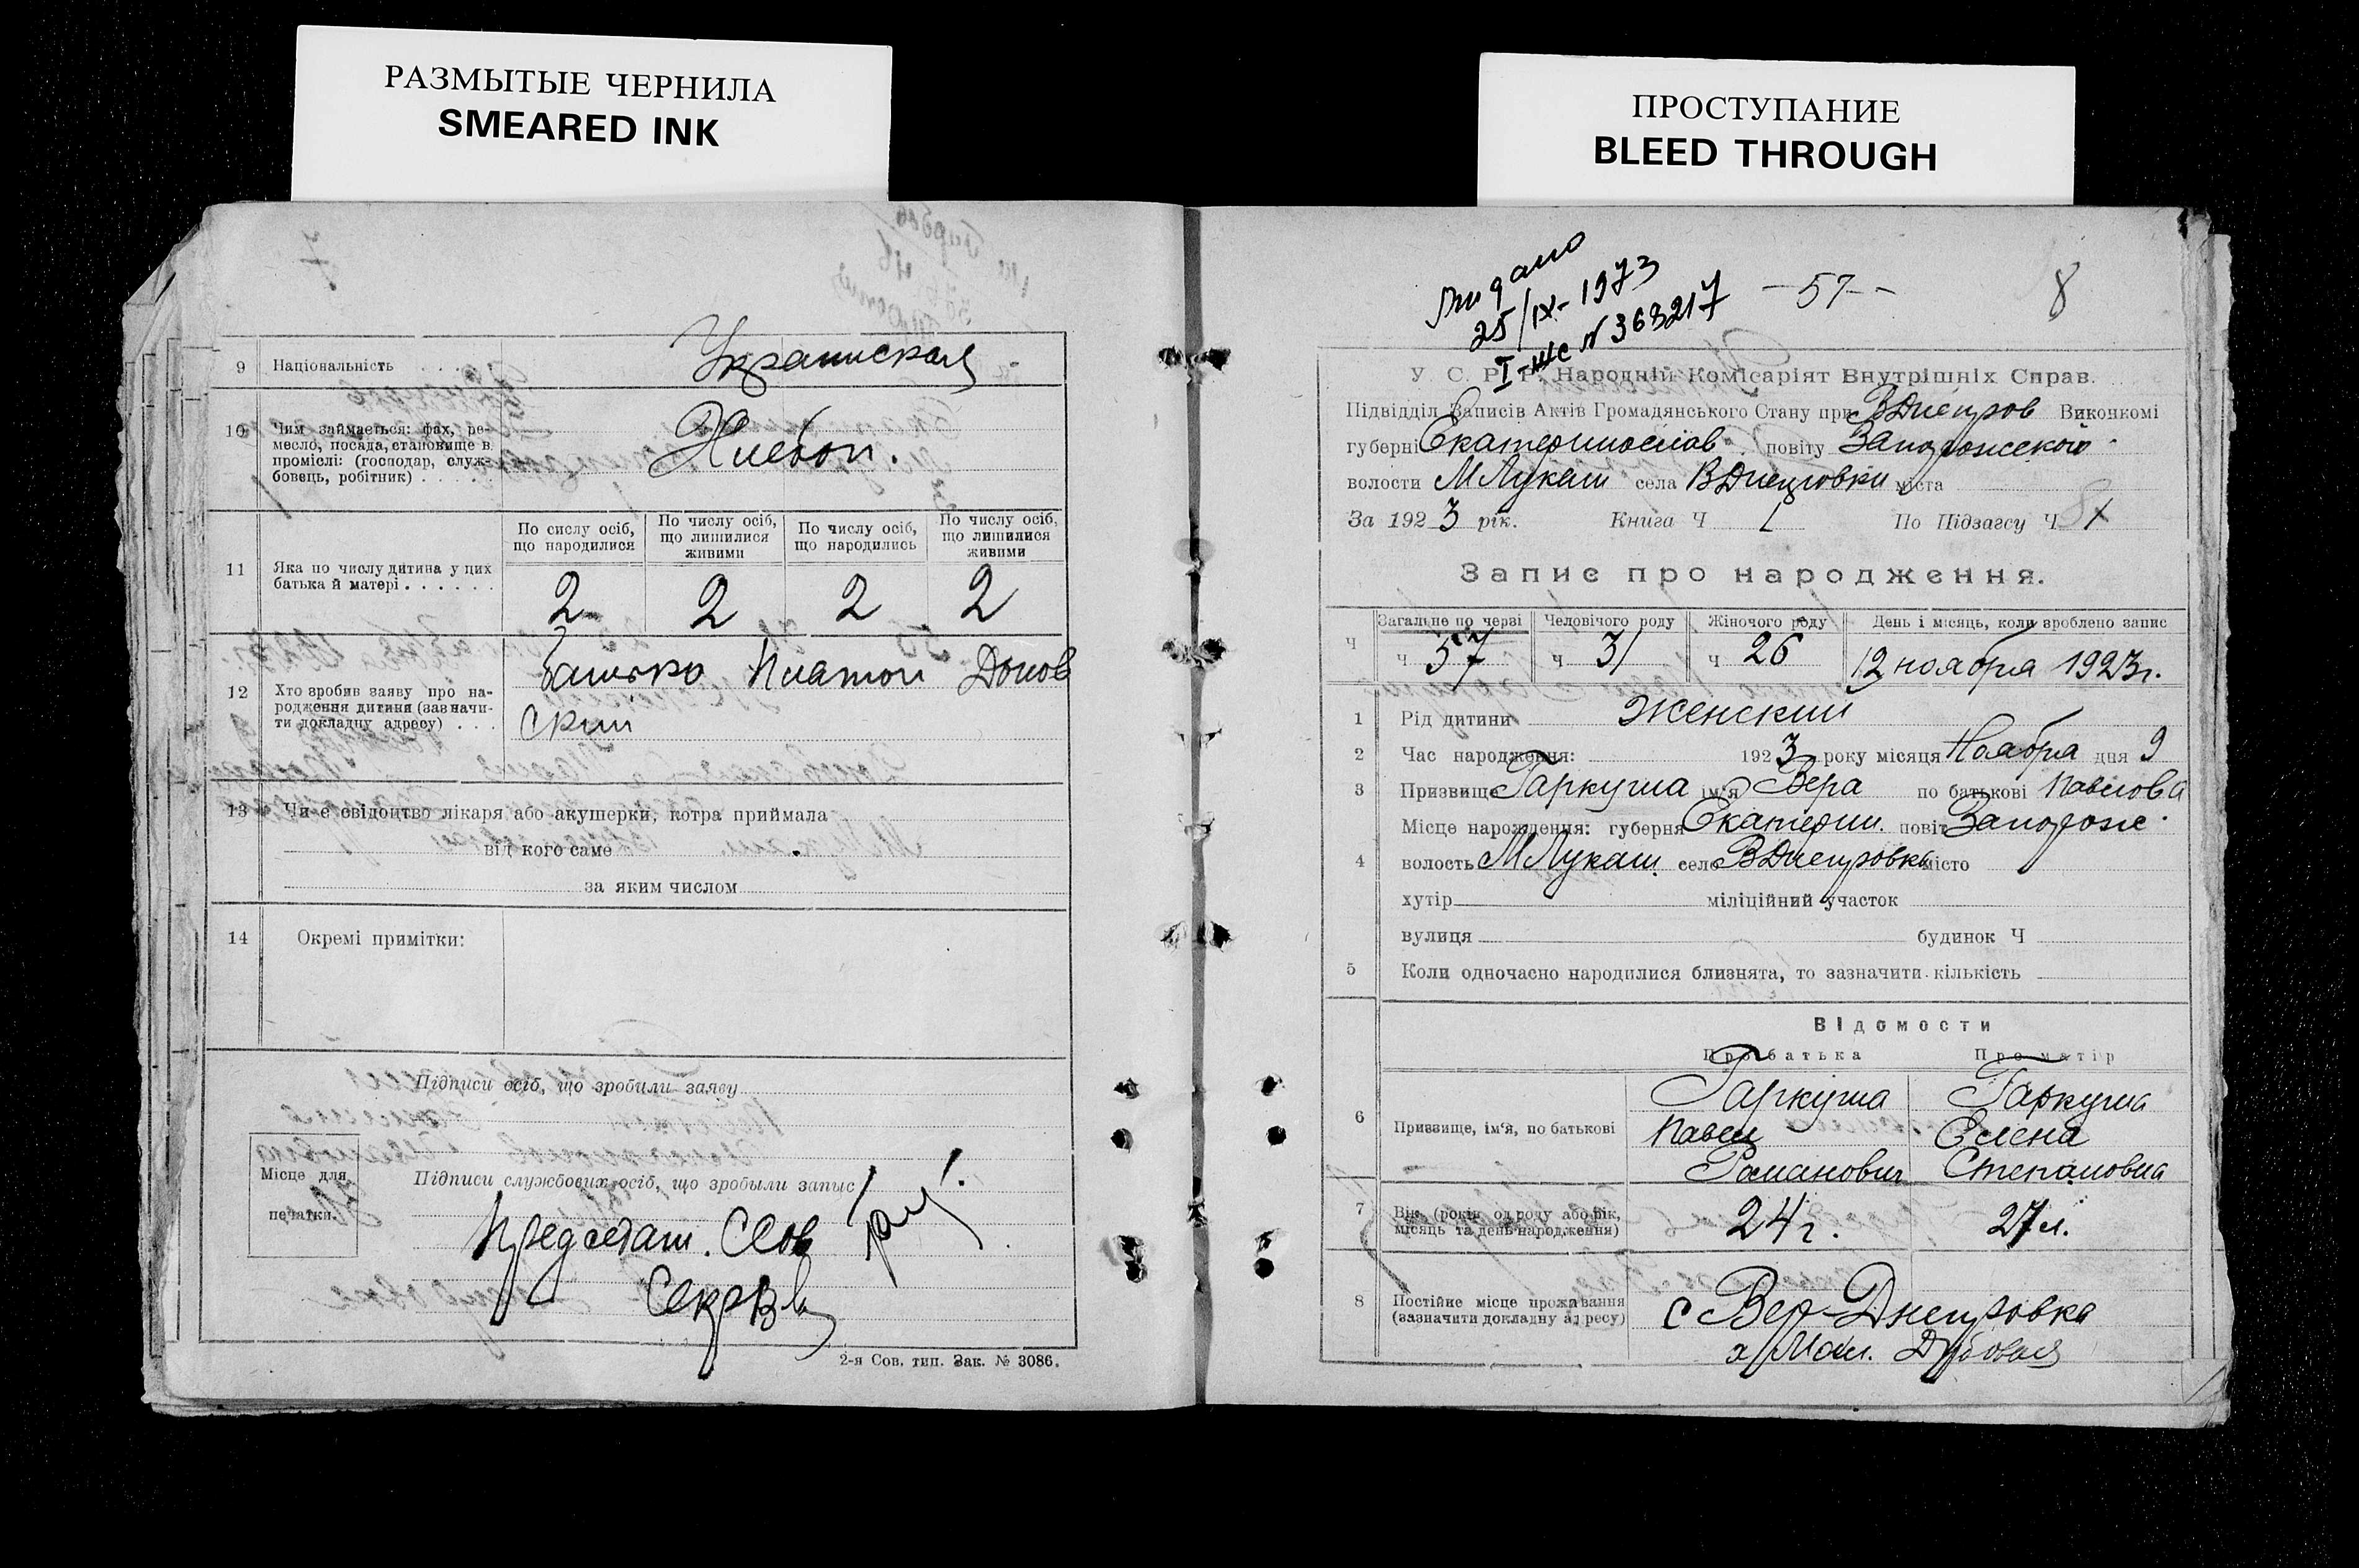 РАЗМЫТЫЕ ЧЕРНИЛА
SMEARED INK
7
9 Національність . . . . Украинская
10 Чим займається: фах, ре-
месло, посада, становище в
промислі: (господар, служ-
бовець, робітник) . . . . . Хлебоп.
11 Яка по числу дитина у цих
батька й матері . . . . . .
По сислу осіб,
що народилися
По числу осіб,
що лишилися
живими
По числу осіб,
що народились
По числу осіб,
що лишилися
живими
2 2 2 2
12 Хто зробив заяву про на-
родження дитини (зазначи-
ти докладну адресу) . . .
Батько Платон Донов
ский
13 Чи є свідоцтво лікаря або акушерки, котра приймала
від кого саме
за яким числом
14 Окремі примітки:
Підписи осіб, що зробили заяву
Місце для
печатки.
Підписи службових осіб, що зробыли запыс
Председат.
Секр
2-я Сов. тип. Зак. № 3086.
ПРОСТУПАНИЕ
BLEED THROUGH
25/IX-1973
I-ЖС № 363217
-57-
8
У. С. Р. Р. Народній Комісаріят Внутрішніх Справ.
Підвідділ Записів Актів Громадянського Стану при ВДнепров Виконкомі
губерні Екатеринослав. повіту Запорожского
волости МЛукаш села ВДнепровки міста
За 1923 рік. Книга Ч 1 По Підзагсу Ч 1
Запис про народження.
Загальне по черзі Человічого роду Жіночого роду День і місяць, коли вроблено запис
Ч ч 57 ч 31 ч 26 12 ноября 1923г.
1 Рід дитини Женский
2 Час народження: 1923 року місяця Ноября дня 9
3 Призвище Гаркуша ім'я Вера по батькові Павлова
Місце народження: губерня Екатерин. повіт Запорож.
4 волость МЛукаш. село ВДнепровка місто
хутір міліційний участок
вулиця будинок Ч
5 Коли одночасно народилися близнята, то зазначити кількість
Відомости
Про батька Про матір
6 Призвище, ім'я, по батькові
Гаркуша Гаркуша
Павел Елена
Романович Степановна
7 Вік (років од роду або рік,
місяць та день народження) 24 г. 27 л.
8 Постійне місце проживання
(зазначити докладну адресу)
с Вер-Днепровка
х Мал. Дубовая